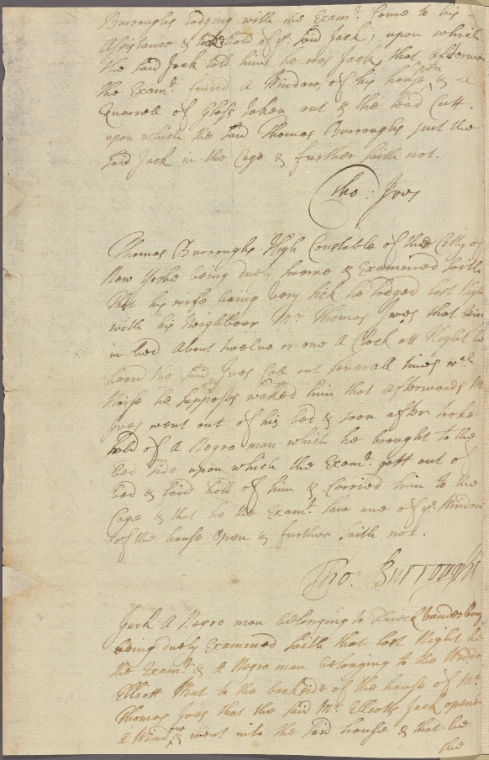 Burroughs lodging with the Exam.t Came to his
Assistance & took hold of ye. said Jack, upon which
the said Jack told him he was Jack, that afterwa
the Exam.t found a Window of his house & a
Quarrel of Glass taken out & the lead Cutt.
upon which the said Thomas Burroughs put the
said Jack in the Cage & further saith not.
Tho: Jves
Thomas Burroughs High Constable of the Citty of
New Yorke being duely sworne & Examined saith
that his wife being very sick he lodged last Nigh
with his Neighbour Mr. Thomas Jves that being
in bed about twelve or one a Clock att Night he
heard the said Jves Call out severall times wch.
Noise he supposes waked him that afterwards Mr
Jves went out of his bed & soon after tooke
hold of A Negro man which he brought to the
bed side upon which the Exam.t gott out of
bed & laid hold of him & Carried him to the
Cage & that he the Exam.t saw one of ye. Window
of the house Open & further saith not.
Tho: Burroughs
Jack A Negro man belonging to Vandenburg
being duely Examined saith that last Night he
the Exam.t & A Negro man belonging to the Widdow
Elliott Went to the backside of the house of Mr.
Thomas Jves that the said Mr. Elliotts Jack opened
a Window & went into the said house & that he
the